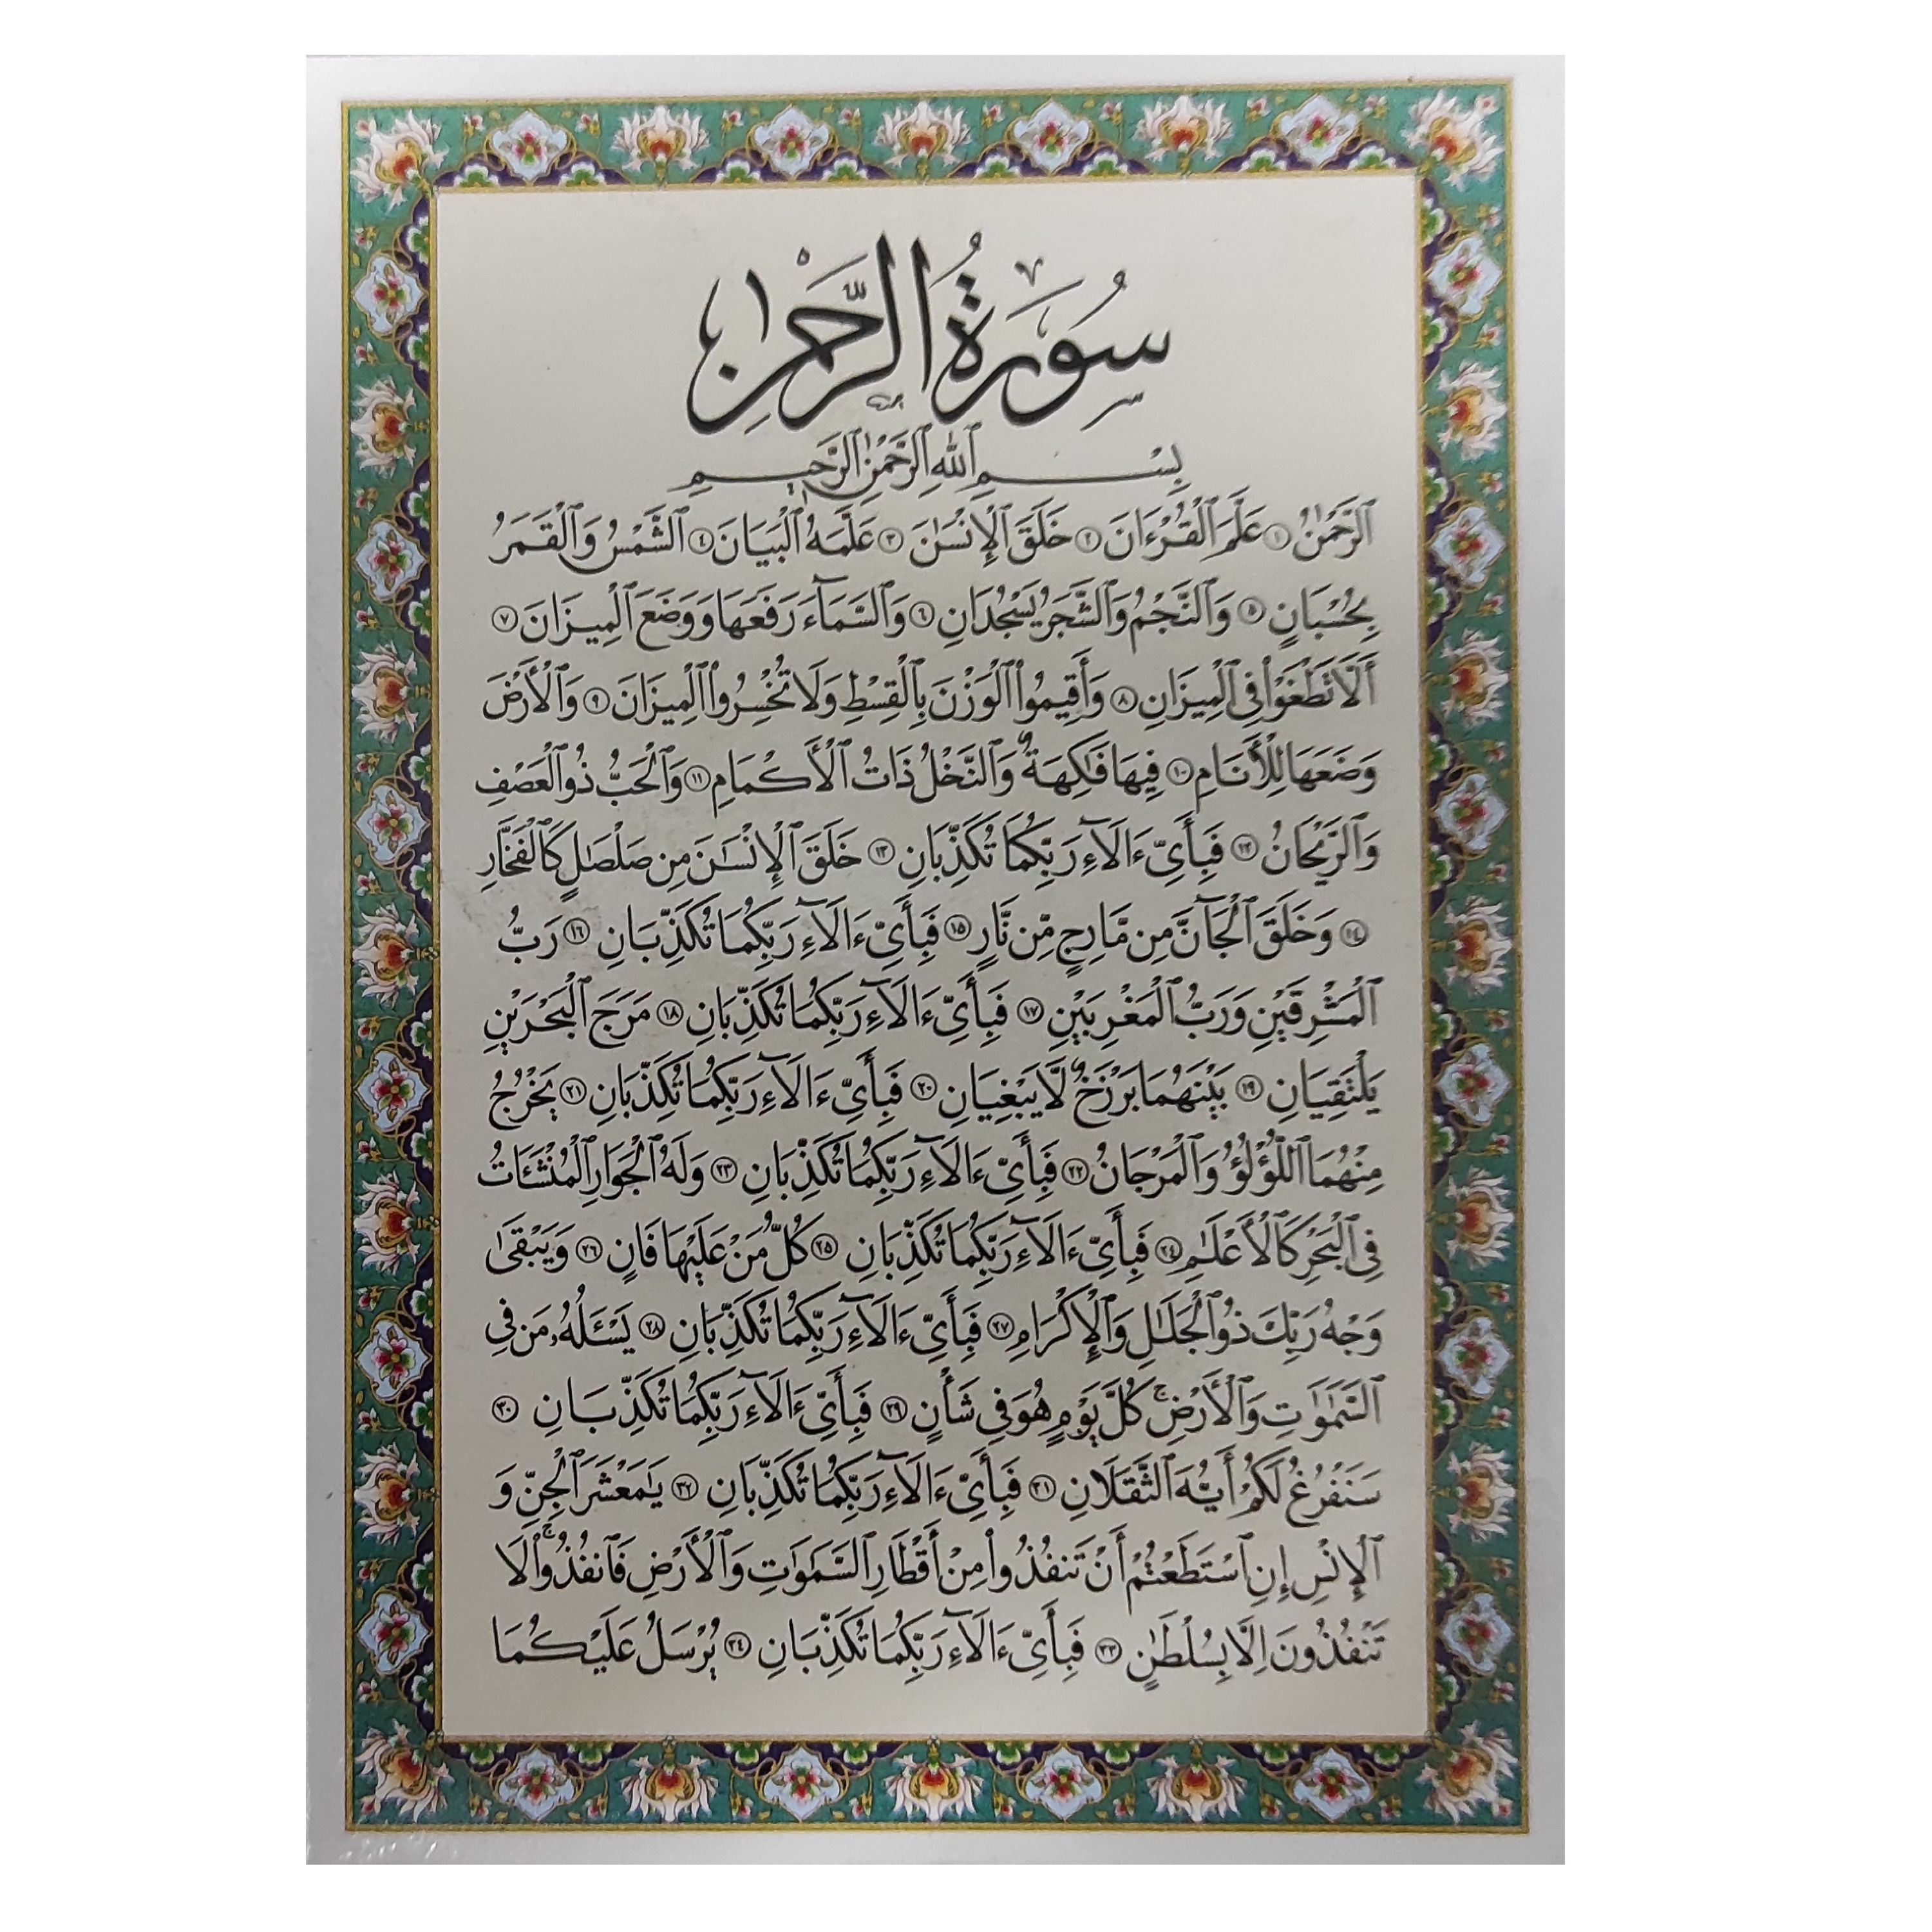 سُورَةُ الرَّحْمٰن
بِسْمِ ٱللَّهِ ٱلرَّحْمَٰنِ ٱلرَّحِيمِ
ٱلرَّحْمَٰنُ ١ عَلَّمَ ٱلْقُرْءَانَ ٢ خَلَقَ ٱلْإِنْسَٰنَ ٣ عَلَّمَهُ ٱلْبَيَانَ ٤ ٱلشَّمْسُ وَٱلْقَمَرُ
بِحُسْبَانٍ ٥ وَٱلنَّجْمُ وَٱلشَّجَرُ يَسْجُدَانِ ٦ وَٱلسَّمَآءَ رَفَعَهَا وَوَضَعَ ٱلْمِيزَانَ ٧
أَلَّا تَطْغَوْا۟ فِى ٱلْمِيزَانِ ٨ وَأَقِيمُوا۟ ٱلْوَزْنَ بِٱلْقِسْطِ وَلَا تُخْسِرُوا۟ ٱلْمِيزَانَ ٩ وَٱلْأَرْضَ
وَضَعَهَا لِلْأَنَامِ ١٠ فِيهَا فَٰكِهَةٌ وَٱلنَّخْلُ ذَاتُ ٱلْأَكْمَامِ ١١ وَٱلْحَبُّ ذُو ٱلْعَصْفِ
وَٱلرَّيْحَانُ ١٢ فَبِأَىِّ ءَالَآءِ رَبِّكُمَا تُكَذِّبَانِ ١٣ خَلَقَ ٱلْإِنْسَٰنَ مِن صَلْصَٰلٍ كَٱلْفَخَّارِ
١٤ وَخَلَقَ ٱلْجَآنَّ مِن مَّارِجٍ مِّن نَّارٍ ١٥ فَبِأَىِّ ءَالَآءِ رَبِّكُمَا تُكَذِّبَانِ ١٦ رَبُّ
ٱلْمَشْرِقَيْنِ وَرَبُّ ٱلْمَغْرِبَيْنِ ١٧ فَبِأَىِّ ءَالَآءِ رَبِّكُمَا تُكَذِّبَانِ ١٨ مَرَجَ ٱلْبَحْرَيْنِ
يَلْتَقِيَانِ ١٩ بَيْنَهُمَا بَرْزَخٌ لَّا يَبْغِيَانِ ٢٠ فَبِأَىِّ ءَالَآءِ رَبِّكُمَا تُكَذِّبَانِ ٢١ يَخْرُجُ
مِنْهُمَا ٱللُّؤْلُؤُ وَٱلْمَرْجَانُ ٢٢ فَبِأَىِّ ءَالَآءِ رَبِّكُمَا تُكَذِّبَانِ ٢٣ وَلَهُ ٱلْجَوَارِ ٱلْمُنْشَـَٔاتُ
فِى ٱلْبَحْرِ كَٱلْأَعْلَٰمِ ٢٤ فَبِأَىِّ ءَالَآءِ رَبِّكُمَا تُكَذِّبَانِ ٢٥ كُلُّ مَنْ عَلَيْهَا فَانٍ ٢٦ وَيَبْقَىٰ
وَجْهُ رَبِّكَ ذُو ٱلْجَلَٰلِ وَٱلْإِكْرَامِ ٢٧ فَبِأَىِّ ءَالَآءِ رَبِّكُمَا تُكَذِّبَانِ ٢٨ يَسْـَٔلُهُۥ مَن فِى
ٱلسَّمَٰوَٰتِ وَٱلْأَرْضِ ۚ كُلَّ يَوْمٍ هُوَ فِى شَأْنٍ ٢٩ فَبِأَىِّ ءَالَآءِ رَبِّكُمَا تُكَذِّبَانِ ٣٠
سَنَفْرُغُ لَكُمْ أَيُّهَ ٱلثَّقَلَانِ ٣١ فَبِأَىِّ ءَالَآءِ رَبِّكُمَا تُكَذِّبَانِ ٣٢ يَٰمَعْشَرَ ٱلْجِنِّ وَ
ٱلْإِنْسِ إِنِ ٱسْتَطَعْتُمْ أَنْ تَنفُذُوا۟ مِنْ أَقْطَارِ ٱلسَّمَٰوَٰتِ وَٱلْأَرْضِ فَٱنفُذُوا۟ ۚ لَا
تَنْفُذُونَ إِلَّا بِسُلْطَٰنٍ ٣٣ فَبِأَىِّ ءَالَآءِ رَبِّكُمَا تُكَذِّبَانِ ٣٤ يُرْسَلُ عَلَيْكُمَا